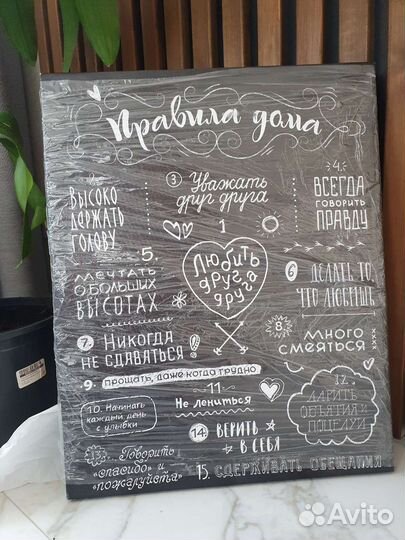 Правила дома
ВЫСОКО
ДЕРЖАТЬ
ГОЛОВУ
3 Уважать
друг друга
4.
ВСЕГДА
ГОВОРИТЬ
ПРАВДУ
1
Любить
друг
друга
5.
МЕЧТАТЬ
О БОЛЬШИХ
ВЫСОТАХ
6 ДЕЛАТЬ ТО,
ЧТО ЛЮБИШЬ
7. НИКОГДА
НЕ СДАВАТЬСЯ!
8.
МНОГО
СМЕЯТЬСЯ
XXXX
9. прощать, даже когда трудно
10. Начинать
каждый день
с улыбки
11
Не лениться
12.
ДАРИТЬ
ОБЪЯТИЯ И
ПОЦЕЛУИ
13. Говорить
"спасибо" и
"пожалуйста"
14. ВЕРИТЬ
В СЕБЯ
15. СДЕРЖИВАТЬ ОБЕЩАНИЯ
Avito